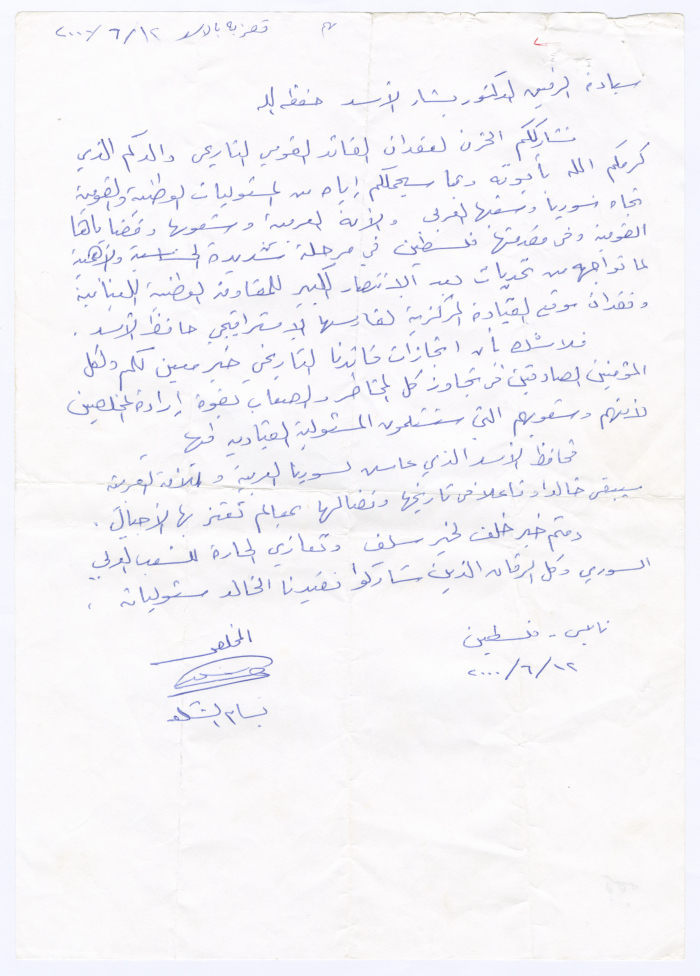 تعزية بالأسد ٢٠٠٠/٦/١٢
سيادة الرفيق الدكتور بشار الأسد حفظه الله
نشارككم الحزن لفقدان القائد القومي التاريخي والدكم الذي
كرمكم الله بأبوته وبما سيحملكم إياه من المسئوليات الوطنية والقومية
تجاه سوريا وشعبها العربي والأمة العربية وشعوبها وقضاياها
القومية وفي مقدمتها فلسطين في مرحلة شديدة الحساسية والأهمية
لما تواجهه من تحديات بعد الانتصار الكبير للمقاومة الوطنية اللبنانية
وفقدان موقع القيادة المركزية لفارسها الاستراتيجي حافظ الأسد .
فلا شك بأن انجازات قائدنا التاريخي خير معين لكم ولكل
المؤمنين الصادقين في تجاوز كل المخاطر والصعاب بقوة إرادة المخلصين
لأمتهم وشعوبهم التي ستستلمون المسئولية القيادية فيها
فحافظ الأسد الذي عاش لسوريا العربية وللأمة العربية
سيبقى خالدا وفاعلا في تاريخها ونضالها بمعالم تعتز بها الأجيال .
ودمتم خير خلف لخير سلف وتعازي الحارة للشعب العربي
السوري وكل الرفاق الذين شاركوا فقيدنا الخالد مسئولياته .
نابلس - فلسطين
٢٠٠٠/٦/١٢
المخلص
بسام الشكعة